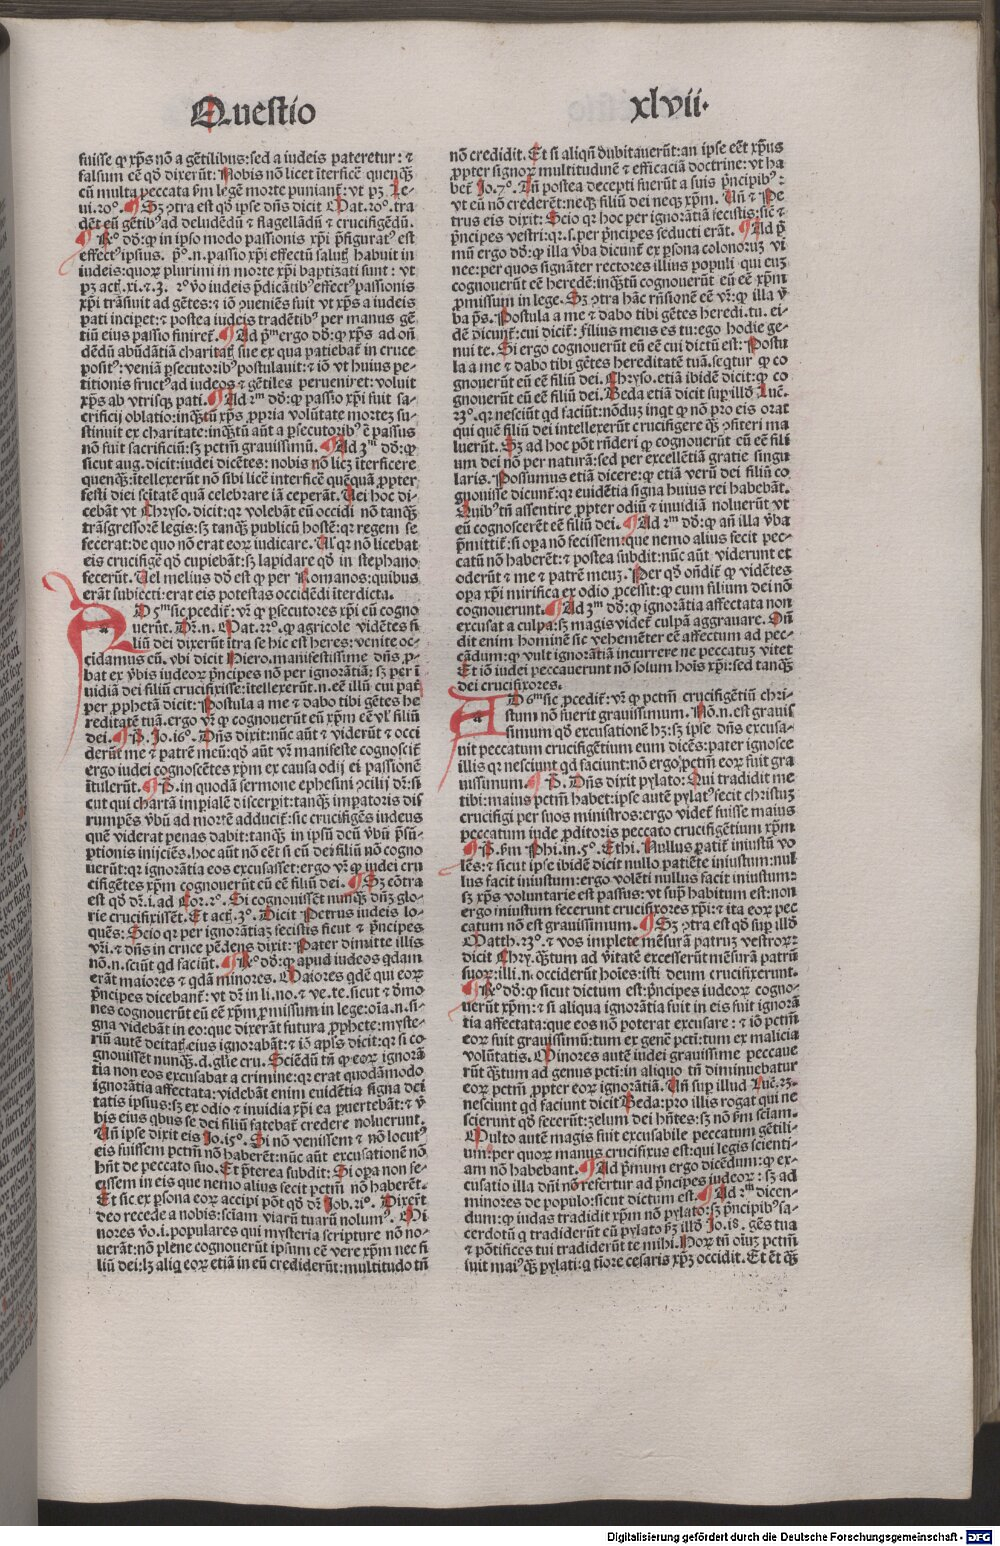 Questio xlvii.
fuisse ꝙ xp̄s nō a gētilibus: sed a iudeis pateretur: ⁊
falsum eē qd̄ dixerūt: Nobis nō licet īterficē quenꝗ̄
cū multa peccata ſm legē morte puniant̄: vt pȝ Le-
vi. 20°. ¶ Sȝ ꝯtra est qd̄ ipse dn̄s dicit Mat. 20°. tra
dēt eū gētibꝰ ad deludēdū ⁊ flagellādū ⁊ crucifigēdū.
¶ Rn̄° dd̄: ꝙ in ipso modo passionis xp̄i p̄figuratꝰ est
effectꝰ ipsius. p°. n. passio xp̄i effectū salutꝭ habuit in
iudeis: quoꝝ plurimi in morte xp̄i baptizati sunt: vt
pȝ actꝭ. xi. ⁊. 3. 2° v̄o iudeis p̄dicātibꝰ effectꝰ passionis
xp̄i trāsiuit ad gētes: ⁊ iō ꝯueniēs fuit vt xp̄s a iudeis
pati inciperet: ⁊ postea iudeis tradētibꝰ per manus gē
tiū eius passio finiret̄. ¶ Ad pᵐ ergo dd̄: ꝙ xp̄s ad on̄
dēdū abūdātiā charitatꝭ sue ex qua patiebat̄ in cruce
positꝰ: veniā ꝑsecutoribꝰ postulauit: ⁊ iō vt huius pe-
titionis fructꝰ ad iudeos ⁊ gētiles perueniret: voluit
xp̄s ab vtrisꝗ pati. ¶ Ad 2ᵐ dd̄: ꝙ passio xp̄i fuit sa-
crificij oblatio: inꝗ̄tū xp̄s ꝓpria volūtate mortez su-
stinuit ex charitate: inꝗ̄tū aūt a ꝑsecutoribꝰ ē passus
nō fuit sacrificiū: sȝ pctm̄ grauissimū. ¶ Ad 3ᵐ dd̄: ꝙ
sicut aug. dicit: iudei dicētes: nobis nō licȝ īterficere
quenꝗ̄: ītellexerūt nō sibi licē īterficē quēꝗ̄ ꝓpter
festi diei sc̄itatē quā celebrare iā ceperāt. Vel hoc di-
cebāt vt Chryso. dicit: qꝛ volebāt eū occidi nō tanꝗ̄
trāsgressorē legis: sȝ tanꝗ̄ publicū hostē: qꝛ regem se
fecerat: de quo nō erat eoꝝ iudicare. Vl̄ qꝛ nō licebat
eis crucifigē qd̄ cupiebāt: sȝ lapidare qd̄ in stephano
fecerūt. Vel melius dd̄ est ꝙ per Romanos: quibus
erāt subiecti: erat eis potestas occidēdi īterdicta.
AD 5ᵐ sic ꝓcedit̄: vr̄ ꝙ ꝑsecutores xp̄i eū cogno
uerūt. Dr̄. n. Mat. 22°. ꝙ agricole vidētes fi
liū dei dixerūt ītra se hic est heres: venite oc-
cidamus eū. vbi dicit Hiero. manifestissime dn̄s ꝓ-
bat ex v̄bis iudeoꝝ p̄ncipes nō per ignorātiā: sȝ per ī
uidiā dei filiū crucifixisse: ītellexerūt. n. eē illū cui pat̄
per ꝓphetā dicit: Postula a me ⁊ dabo tibi gētes he
reditatē tuā. ergo vr̄ ꝙ cognouerūt eū xp̄m eē vl̄ filiū
dei. ¶ P. Jo. 16°. Dn̄s dixit: nūc aūt ⁊ viderūt ⁊ occi
derūt me ⁊ patrē meū: qd̄ aūt vr̄ manifeste cognoscit̄
ergo iudei cognoscētes xp̄m ex causa odij ei passionē
ītulerūt. ¶ P. in quodā sermone ephesini ꝯcilij dr̄: si
cut qui chartā impialē discerpit: tanꝗ̄ impatoris dis
rumpēs v̄bū ad mortē adducit̄: sic crucifigēs iudeus
quē viderat penas dabit: tanꝗ̄ in ipsū deū v̄bū p̄sū-
ptionis inijciēs. hoc aūt nō eēt si eū dei filiū nō cogno
uerūt: qꝛ ignorātia eos excusasset: ergo vr̄ ꝙ iudei cru
cifigētes xp̄m cognouerūt eū eē filiū dei. ¶ Sȝ cōtra
est qd̄ dr̄. i. ad Cor. 2°. Si cognouissēt nunꝗ̄ dn̄ȝ glo-
rie crucifixissēt. Et actꝭ. 3°. Dicit Petrus iudeis lo-
quēs: Scio qꝛ per ignorātiaȝ fecistis sicut ⁊ p̄ncipes
vr̄i. ⁊ dn̄s in cruce pēdens dixit: Pater dimitte illis
nō. n. sciūt qd faciūt. ¶ Rn̄° dd̄: ꝙ apud iudeos qdam
erāt maiores ⁊ qdā minores. Maiores qdē qui eoꝝ
p̄ncipes dicebant̄: vt dr̄ in li. no. ⁊ ve. te. sicut ⁊ dēmo
nes cognouerūt eū eē xp̄m ꝓmissum in lege: oīa. n. si-
gna videbāt in eo: que dixerāt futura ꝓphete: myste-
riū autē deitatꝭ eius ignorabāt: ⁊ iō apl̄s dicit: qꝛ si co
gnouissēt nunꝗ̄. d. gl̄ie cru. Sciēdū tn̄ ꝙ eoꝝ ignorā
tia non eos excusabat a crimine: qꝛ erat quodāmodo
ignorātia affectata: videbāt enim euidētia signa dei
tatis ipsius: sȝ ex odio ⁊ inuidia xp̄i ea ꝑuertebāt: ⁊ v̄
bis eius qbus se dei filiū fatebat̄ credere noluerunt.
Vn̄ ipse dixit eis Jo. 15°. Si nō venissem ⁊ nō locutꝰ
eis fuissem pctm̄ nō haberēt: nūc aūt excusationē nō
hn̄t de peccato suo. Et p̄terea subdit: Si opa non fe-
cissem in eis que nemo alius fecit pctm̄ nō haberēt.
Et sic ex ꝑsona eoꝝ accipi pōt qd̄ dr̄ Job. 21°. Dixerūt
deo recede a nobis: sciam viarū tuarū nolumꝰ. Mi
nores v̄o. i. populares qui mysteria scripture nō no-
uerāt: nō plene cognouerūt ipsum eē vere xp̄m nec fi
liū dei: lȝ aliq eoꝝ etiā in eū crediderūt: multitudo tn̄
nō credidit. Et si aliqn̄ dubitauerūt: an ipse eēt xp̄us
ꝓpter signoꝝ multitudinē ⁊ efficaciā doctrine: vt ha
bet̄ Jo. 7°. Tn̄ postea decepti fuerūt a suis p̄ncipibꝰ:
vt eū nō crederēt: neqꝫ filiū dei neqꝫ xp̄m. Vn̄ ⁊ Pe
trus eis dixit: Scio qꝛ hoc per ignorātiā fecistis: sic̄ ⁊
p̄ncipes vestri: qꝛ. s. per p̄ncipes seducti erāt. ¶ Ad p̄
mū ergo dd̄: ꝙ illa v̄ba dicunt̄ ex ꝑsona colonoruȝ vi
nee: per quos signāter rectores illius populi qui euȝ
cognouerūt eē heredē: inꝗ̄tū cognouerūt eū eē xp̄m
ꝓmissum in lege. Sȝ ꝯtra hāc rn̄sionē eē vr̄: ꝙ illa v̄
ba ps̄. Postula a me ⁊ dabo tibi gētes heredi. tu. ei-
dē dicunt̄: cui dicit̄: filius meus es tu: ego hodie ge-
nui te. Si ergo cognouerūt eū eē cui dictū est: Postu
la a me ⁊ dabo tibi gētes hereditatē tuā. seqtur ꝙ co
gnouerūt eū eē filiū dei. Chryso. etiā ibidē dicit: ꝙ co
gnouerūt eū eē filiū dei. Beda etiā dicit sup illd̄ Luc.
23°. qꝛ nesciūt qd faciūt: nōduȝ inqt ꝙ nō pro eis orat
qui quē filiū dei intellexerūt crucifigere ꝗ̄ ꝯfiteri ma
luerūt. Sȝ ad hoc pōt rn̄deri ꝙ cognouerūt eū eē fili
um dei nō per naturā: sed per excellētiā gratie singu
laris. Possumus etiā dicere: ꝙ etiā verū dei filiū co
gnouisse dicunt̄: qꝛ euidētia signa huius rei habebāt.
Quibꝰ tn̄ assentire ꝓpter odiū ⁊ inuidiā noluerūt vt
eū cognoscerēt eē filiū dei. ¶ Ad 2ᵐ dd̄: ꝙ an̄ illa v̄ba
p̄mittit̄: si opa nō fecissem: que nemo alius fecit pec-
catū nō haberēt: ⁊ postea subdit: nūc aūt viderunt et
oderūt ⁊ me ⁊ patrē meuȝ. Per qd̄ on̄dit̄ ꝙ vidētes
opa xp̄i mirifica ex odio ꝓcessit: ꝙ eum filium dei nō
cognouerunt. ¶ Ad 3ᵐ dd̄: ꝙ ignorātia affectata non
excusat a culpa: sȝ magis videt̄ culpā aggrauare. On̄
dit enim hominē sic vehemēter eē affectum ad pec-
cādum: ꝙ vult ignorātiā incurrere ne peccatuȝ vitet
Et iō iudei peccauerunt nō solum hoīs xp̄i: sed tanꝗ̄
dei crucifixores.
AD 6ᵐ sic ꝓcedit̄: vr̄ ꝙ pctm̄ crucifigētiū chri-
stum nō fuerit grauissimum. Nō. n. est grauis
simum qd̄ excusationē hȝ: sȝ ipse dn̄s excusa-
uit peccatum crucifigētium eum dicēs: pater ignosce
illis qꝛ nesciunt qd faciunt: nō ergo pctm̄ eoꝝ fuit gra
uissimum. ¶ P. Dn̄s dixit pylato: Qui tradidit me
tibi: maius pctm̄ habet: ipse autē pylatꝰ fecit christuȝ
crucifigi per suos ministros: ergo videt̄ fuisse maius
peccatum iude ꝓditoris peccato crucifigētium xp̄m
¶ P. ſm Phi. in. 5°. Ethi. Nullus patit̄ iniustū vo
lēs: ⁊ sicut ipse ibidē dicit nullo patiēte iniustum: nul
lus facit iniustum: ergo volēti nullus facit iniustum:
sȝ xp̄s voluntarie est passus: vt sup̄ habitum est: non
ergo iniustum fecerunt crucifixores xp̄i: ⁊ ita eoꝝ pec
catum nō est grauissimum. ¶ Sȝ ꝯtra est qd̄ sup illd̄
Matth. 23°. ⁊ vos implete mēsurā patruȝ vestroꝝ:
dicit Chry. ꝗ̄tum ad v̄itatē excesserūt mēsurā patrū
suoꝝ: illi. n. occiderūt hoīes: isti deum crucifixerunt.
¶ Rn̄° dd̄: ꝙ sicut dictum est: p̄ncipes iudeoꝝ cogno-
uerūt xp̄m: ⁊ si aliqua ignorātia fuit in eis fuit ignorā
tia affectata: que eos nō poterat excusare: ⁊ iō pctm̄
eoꝝ fuit grauissimū: tum ex genē pcti: tum ex malicia
volūtatis. Minores autē iudei grauissime peccaue
rūt ꝗ̄tum ad genus pcti: in aliquo tn̄ diminuebatur
eoꝝ pctm̄ ꝓpter eoꝝ ignorātiā. Vn̄ sup illud Luc. 23.
nesciunt qd faciunt dicit Beda: pro illis rogat qui ne
scierunt qd̄ fecerūt: zelum dei hn̄tes: sȝ nō ſm sciam.
Multo autē magis fuit excusabile peccatum gētili-
um: per quoꝝ manus crucifixus est: qui legis scienti-
am nō habebant. ¶ Ad p̄mum ergo dicēdum: ꝙ ex-
cusatio illa dn̄i nō refertur ad p̄ncipes iudeoꝝ: sȝ ad
minores de populo: sicut dictum est. ¶ Ad 2ᵐ dicen-
dum: ꝙ iudas tradidit xp̄m nō pylato: sȝ p̄ncipibꝰ sa-
cerdotū q tradiderūt eū pylato ꝑȝ illd̄ Jo. 18. gēs tua
⁊ pōtifices tui tradiderūt te mihi. Hoꝝ tn̄ oiuȝ pctm̄
fuit maiꝰ ꝗ̄ pylati: q tiore cesaris xp̄ȝ occidit. Et ēt ꝗ̄
Digitalisierung gefördert durch die Deutsche Forschungsgemeinschaft - DFG